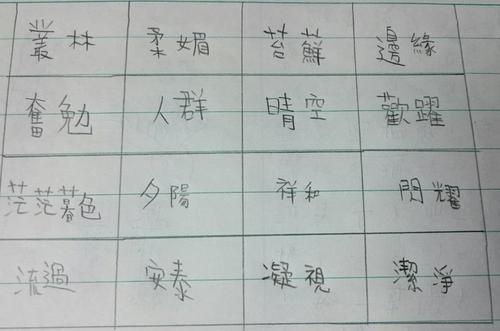 叢林 柔媚 苔蘚 邊緣
奮勉 人群 晴空 歡躍
茫茫暮色 夕陽 祥和 閃耀
流過 安泰 凝視 潔淨